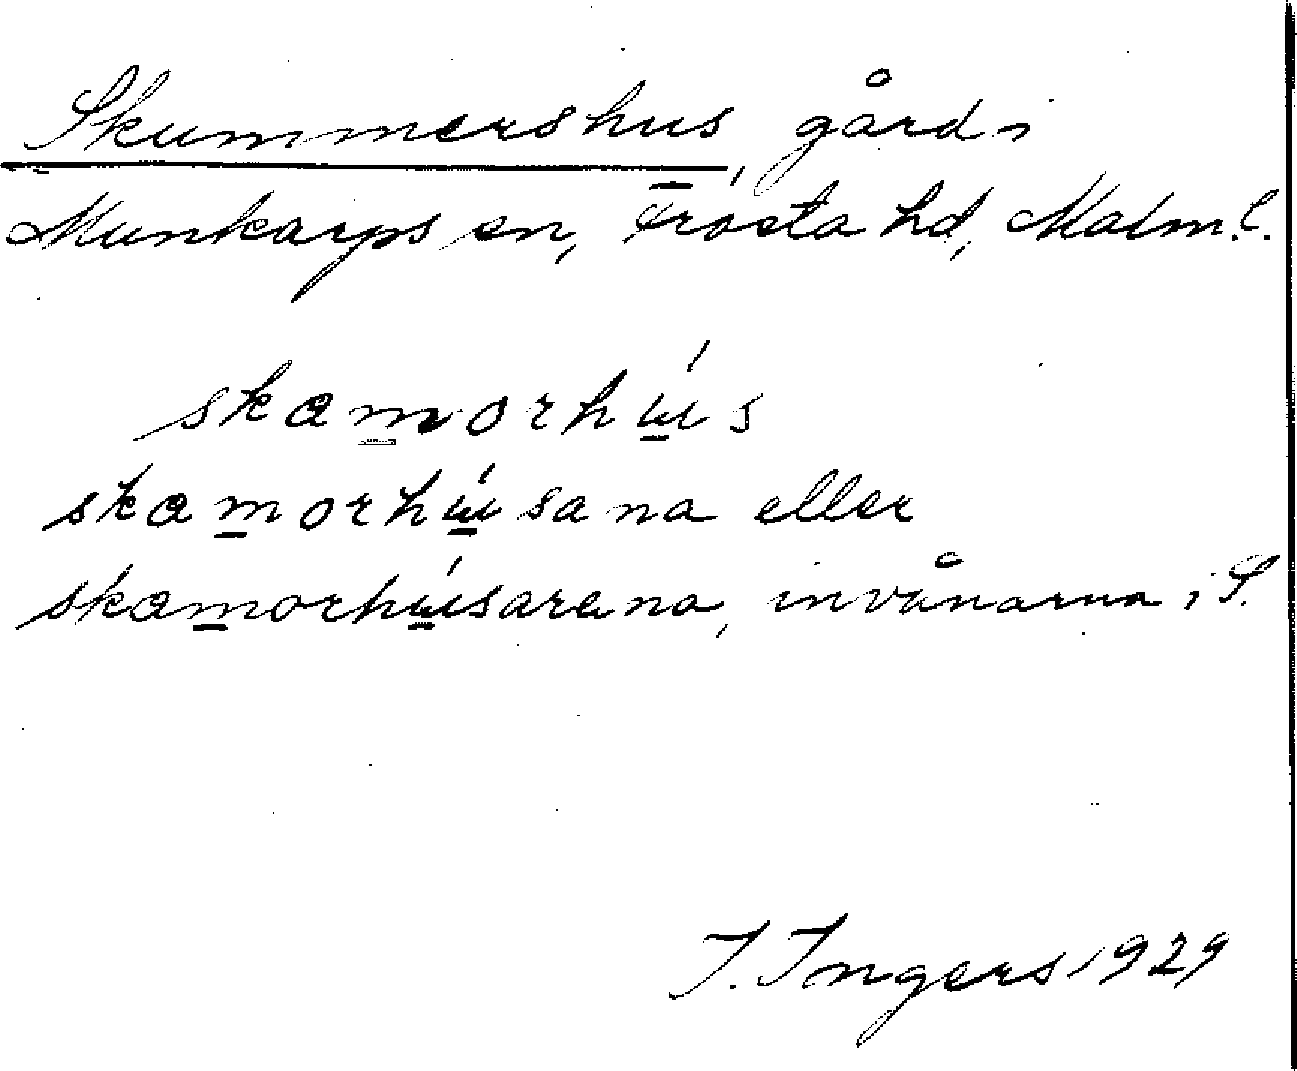 Skummershus, gård i
Munkarps sn, Frosta hd, Malm. l.
skamorhús
skamorhúsana eller
skamorhúsarena, invånarna i S.
I. Ingers 1929